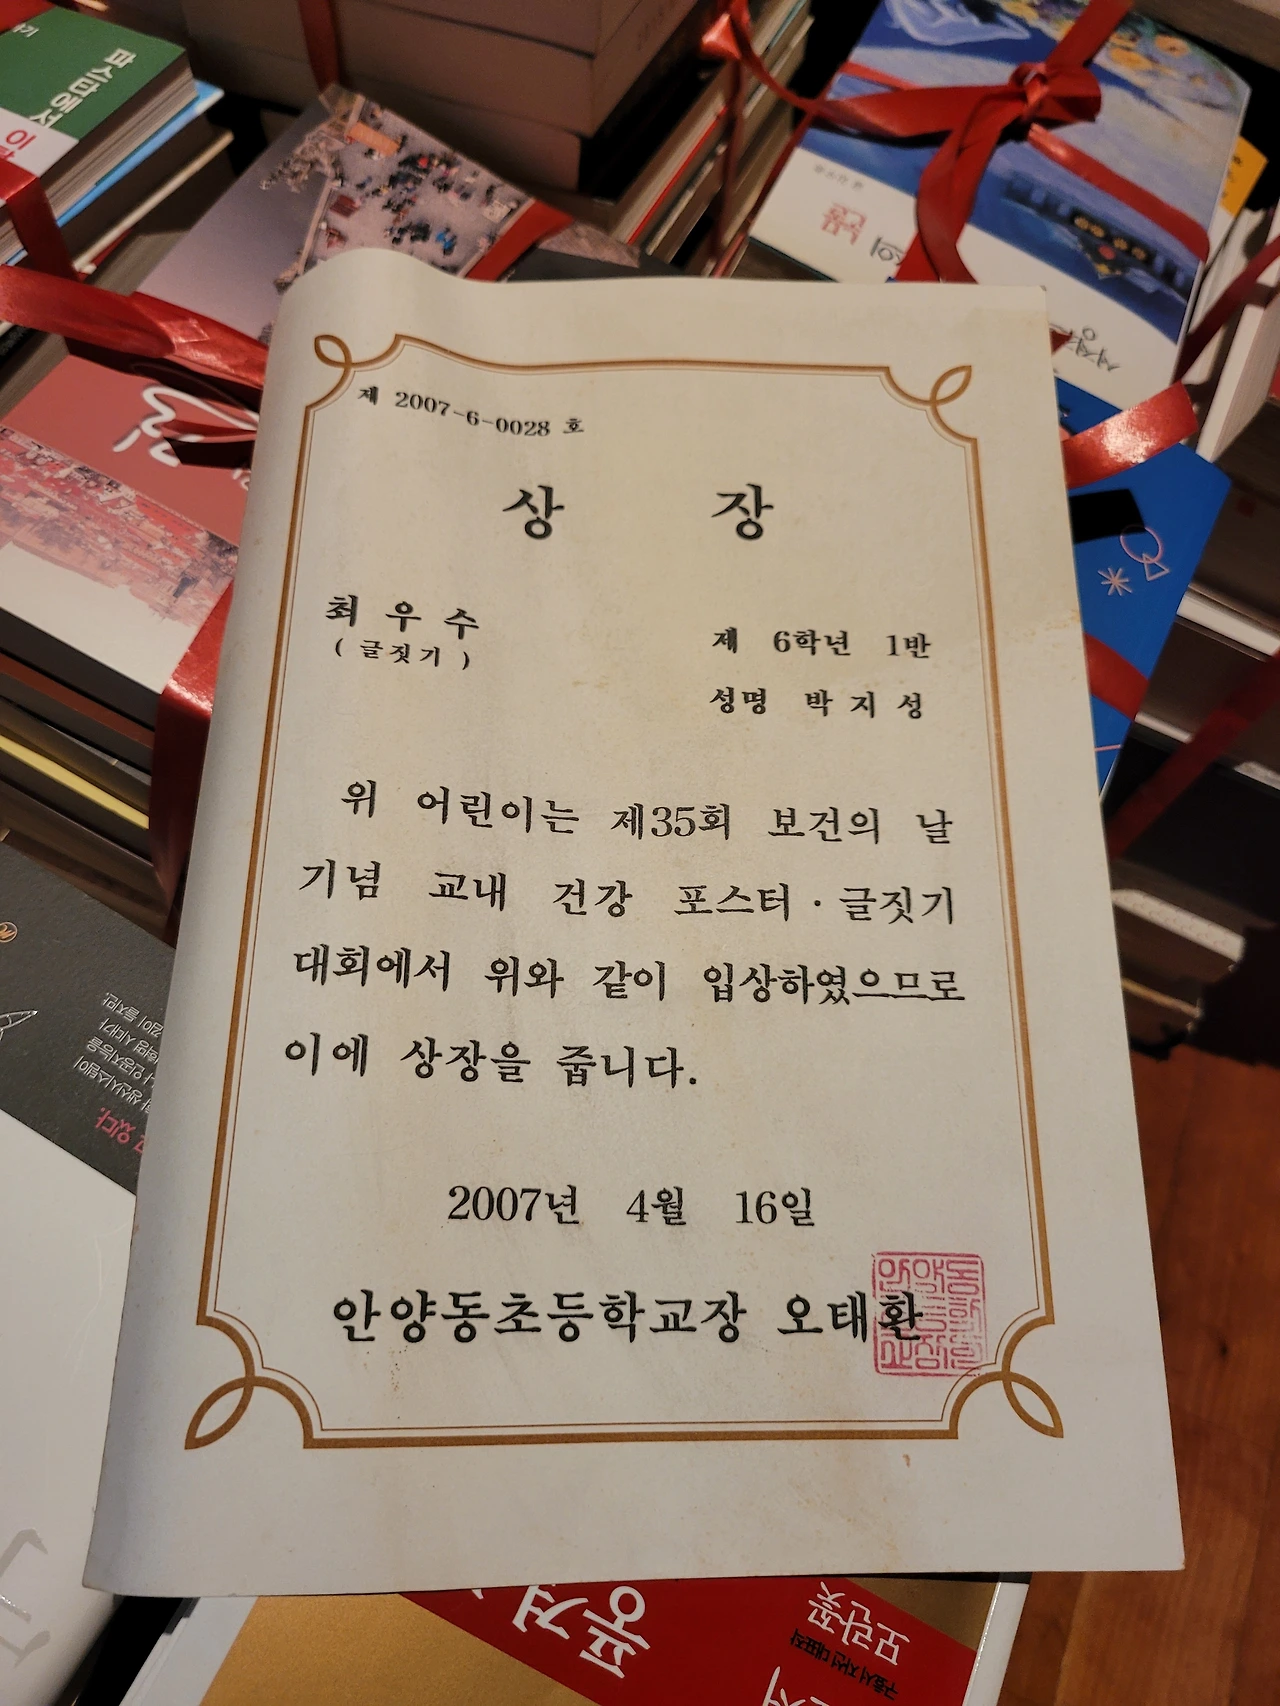 제 2007-6-0028 호
상 장
최 우 수
( 글짓기 )
제 6학년 1반
성명 박 지 성
위 어린이는 제35회 보건의 날
기념 교내 건강 포스터·글짓기
대회에서 위와 같이 입상하였으므로
이에 상장을 줍니다.
2007년 4월 16일
안양동초등학교장 오태환
파스타에서
풍경
모란꽃